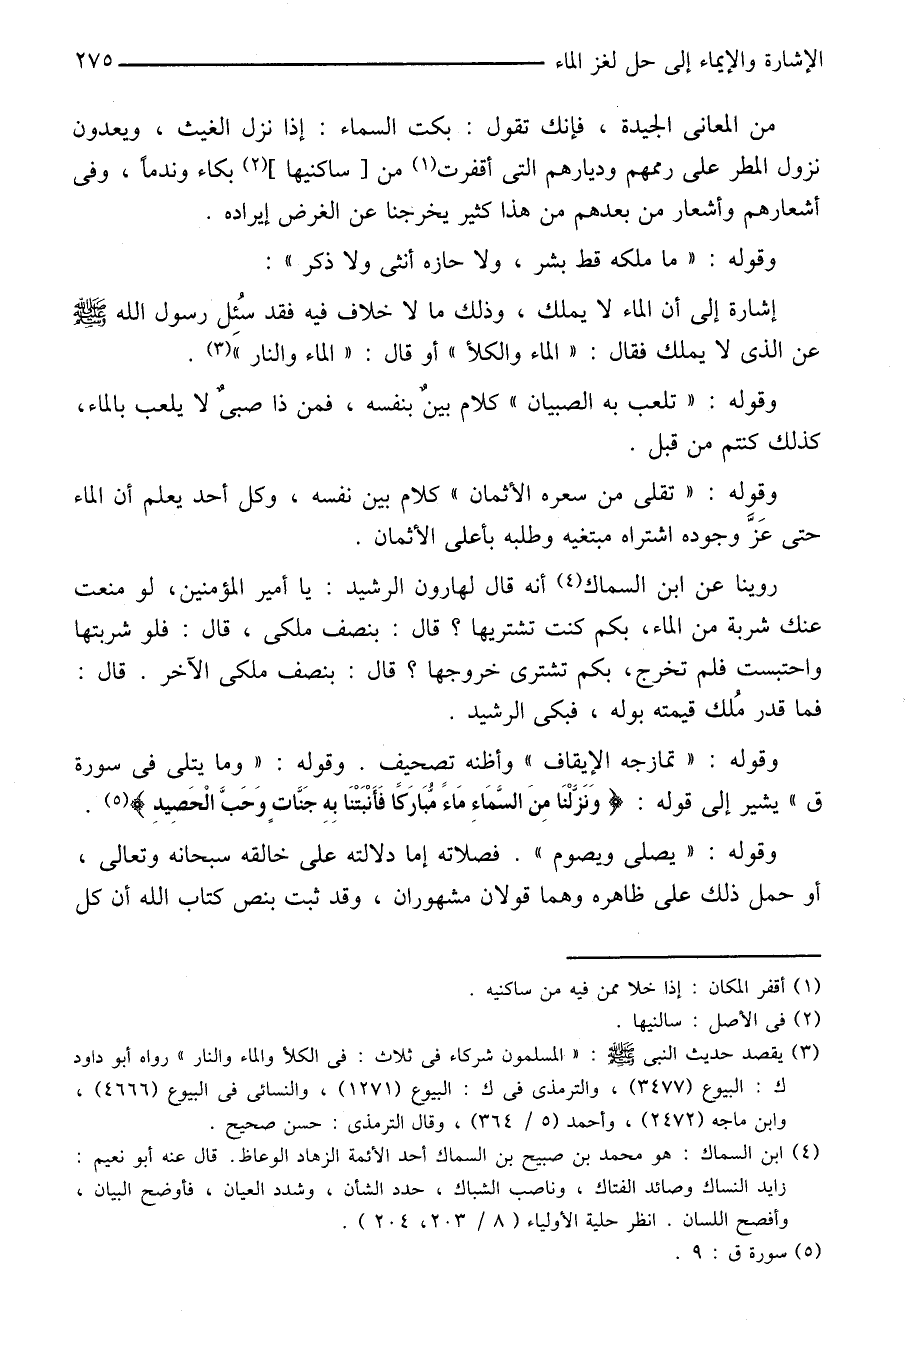 الإشارة والإيماء إلى حل لغز الماء ٢٧٥
من المعانى الجيدة ، فإنك تقول : بكت السماء : إذا نزل الغيث ، ويعدون
نزول المطر على رممهم وديارهم التى أقفرت(١) من [ ساكنيها ](٢) بكاء وندماً ، وفى
أشعارهم وأشعار من بعدهم من هذا كثير يخرجنا عن الغرض إيراده .
وقوله : « ما ملكه قط بشر ، ولا حازه أنثى ولا ذكر » :
إشارة إلى أن الماء لا يملك ، وذلك ما لا خلاف فيه فقد سُئِل رسول الله ﷺ
عن الذى لا يملك فقال : « الماء والكلأ » أو قال : « الماء والنار »(٣) .
وقوله : « تلعب به الصبيان » كلام بينٌ بنفسه ، فمن ذا صبىٌ لا يلعب بالماء،
كذلك كنتم من قبل .
وقوله : « تقلى من سعره الأثمان » كلام بين نفسه ، وكل أحد يعلم أن الماء
حتى عَزَّ وجوده اشتراه مبتغيه وطلبه بأعلى الأثمان .
روينا عن ابن السماك(٤) أنه قال لهارون الرشيد : يا أمير المؤمنين، لو منعت
عنك شربة من الماء، بكم كنت تشتريها ؟ قال : بنصف ملكى ، قال : فلو شربتها
واحتبست فلم تخرج، بكم تشترى خروجها ؟ قال : بنصف ملكى الآخر . قال :
فما قدر مُلك قيمته بوله ، فبكى الرشيد .
وقوله : « تمازجه الإيقاف » وأظنه تصحيف . وقوله : « وما يتلى فى سورة
ق » يشير إلى قوله : ﴿ وَنَزَّلْنَا مِنَ السَّمَاءِ مَاءً مُّبَارَكًا فَأَنبَتْنَا بِهِ جَنَّاتٍ وَحَبَّ الْحَصِيدِ ﴾(٥) .
وقوله : « يصلى ويصوم » . فصلاته إما دلالته على خالقه سبحانه وتعالى ،
أو حمل ذلك على ظاهره وهما قولان مشهوران ، وقد ثبت بنص كتاب الله أن كل
(١) أقفر المكان : إذا خلا ممن فيه من ساكنيه .
(٢) فى الأصل : سالنيها .
(٣) يقصد حديث النبى ﷺ : « المسلمون شركاء فى ثلاث : فى الكلأ والماء والنار » رواه أبو داود
ك : البيوع (٣٤٧٧) ، والترمذى فى ك : البيوع (١٢٧١) ، والنسائى فى البيوع (٤٦٦٦) ،
وابن ماجه (٢٤٧٢) ، وأحمد (٥ / ٣٦٤) ، وقال الترمذى : حسن صحيح .
(٤) ابن السماك : هو محمد بن صبيح بن السماك أحد الأئمة الزهاد الوعاظ. قال عنه أبو نعيم :
زايد النساك وصائد الفتاك ، وناصب الشباك ، حدد الشأن ، وشدد العيان ، فأوضح البيان ،
وأفصح اللسان . انظر حلية الأولياء ( ٨ / ٢٠٣، ٢٠٤ ) .
(٥) سورة ق : ٩ .